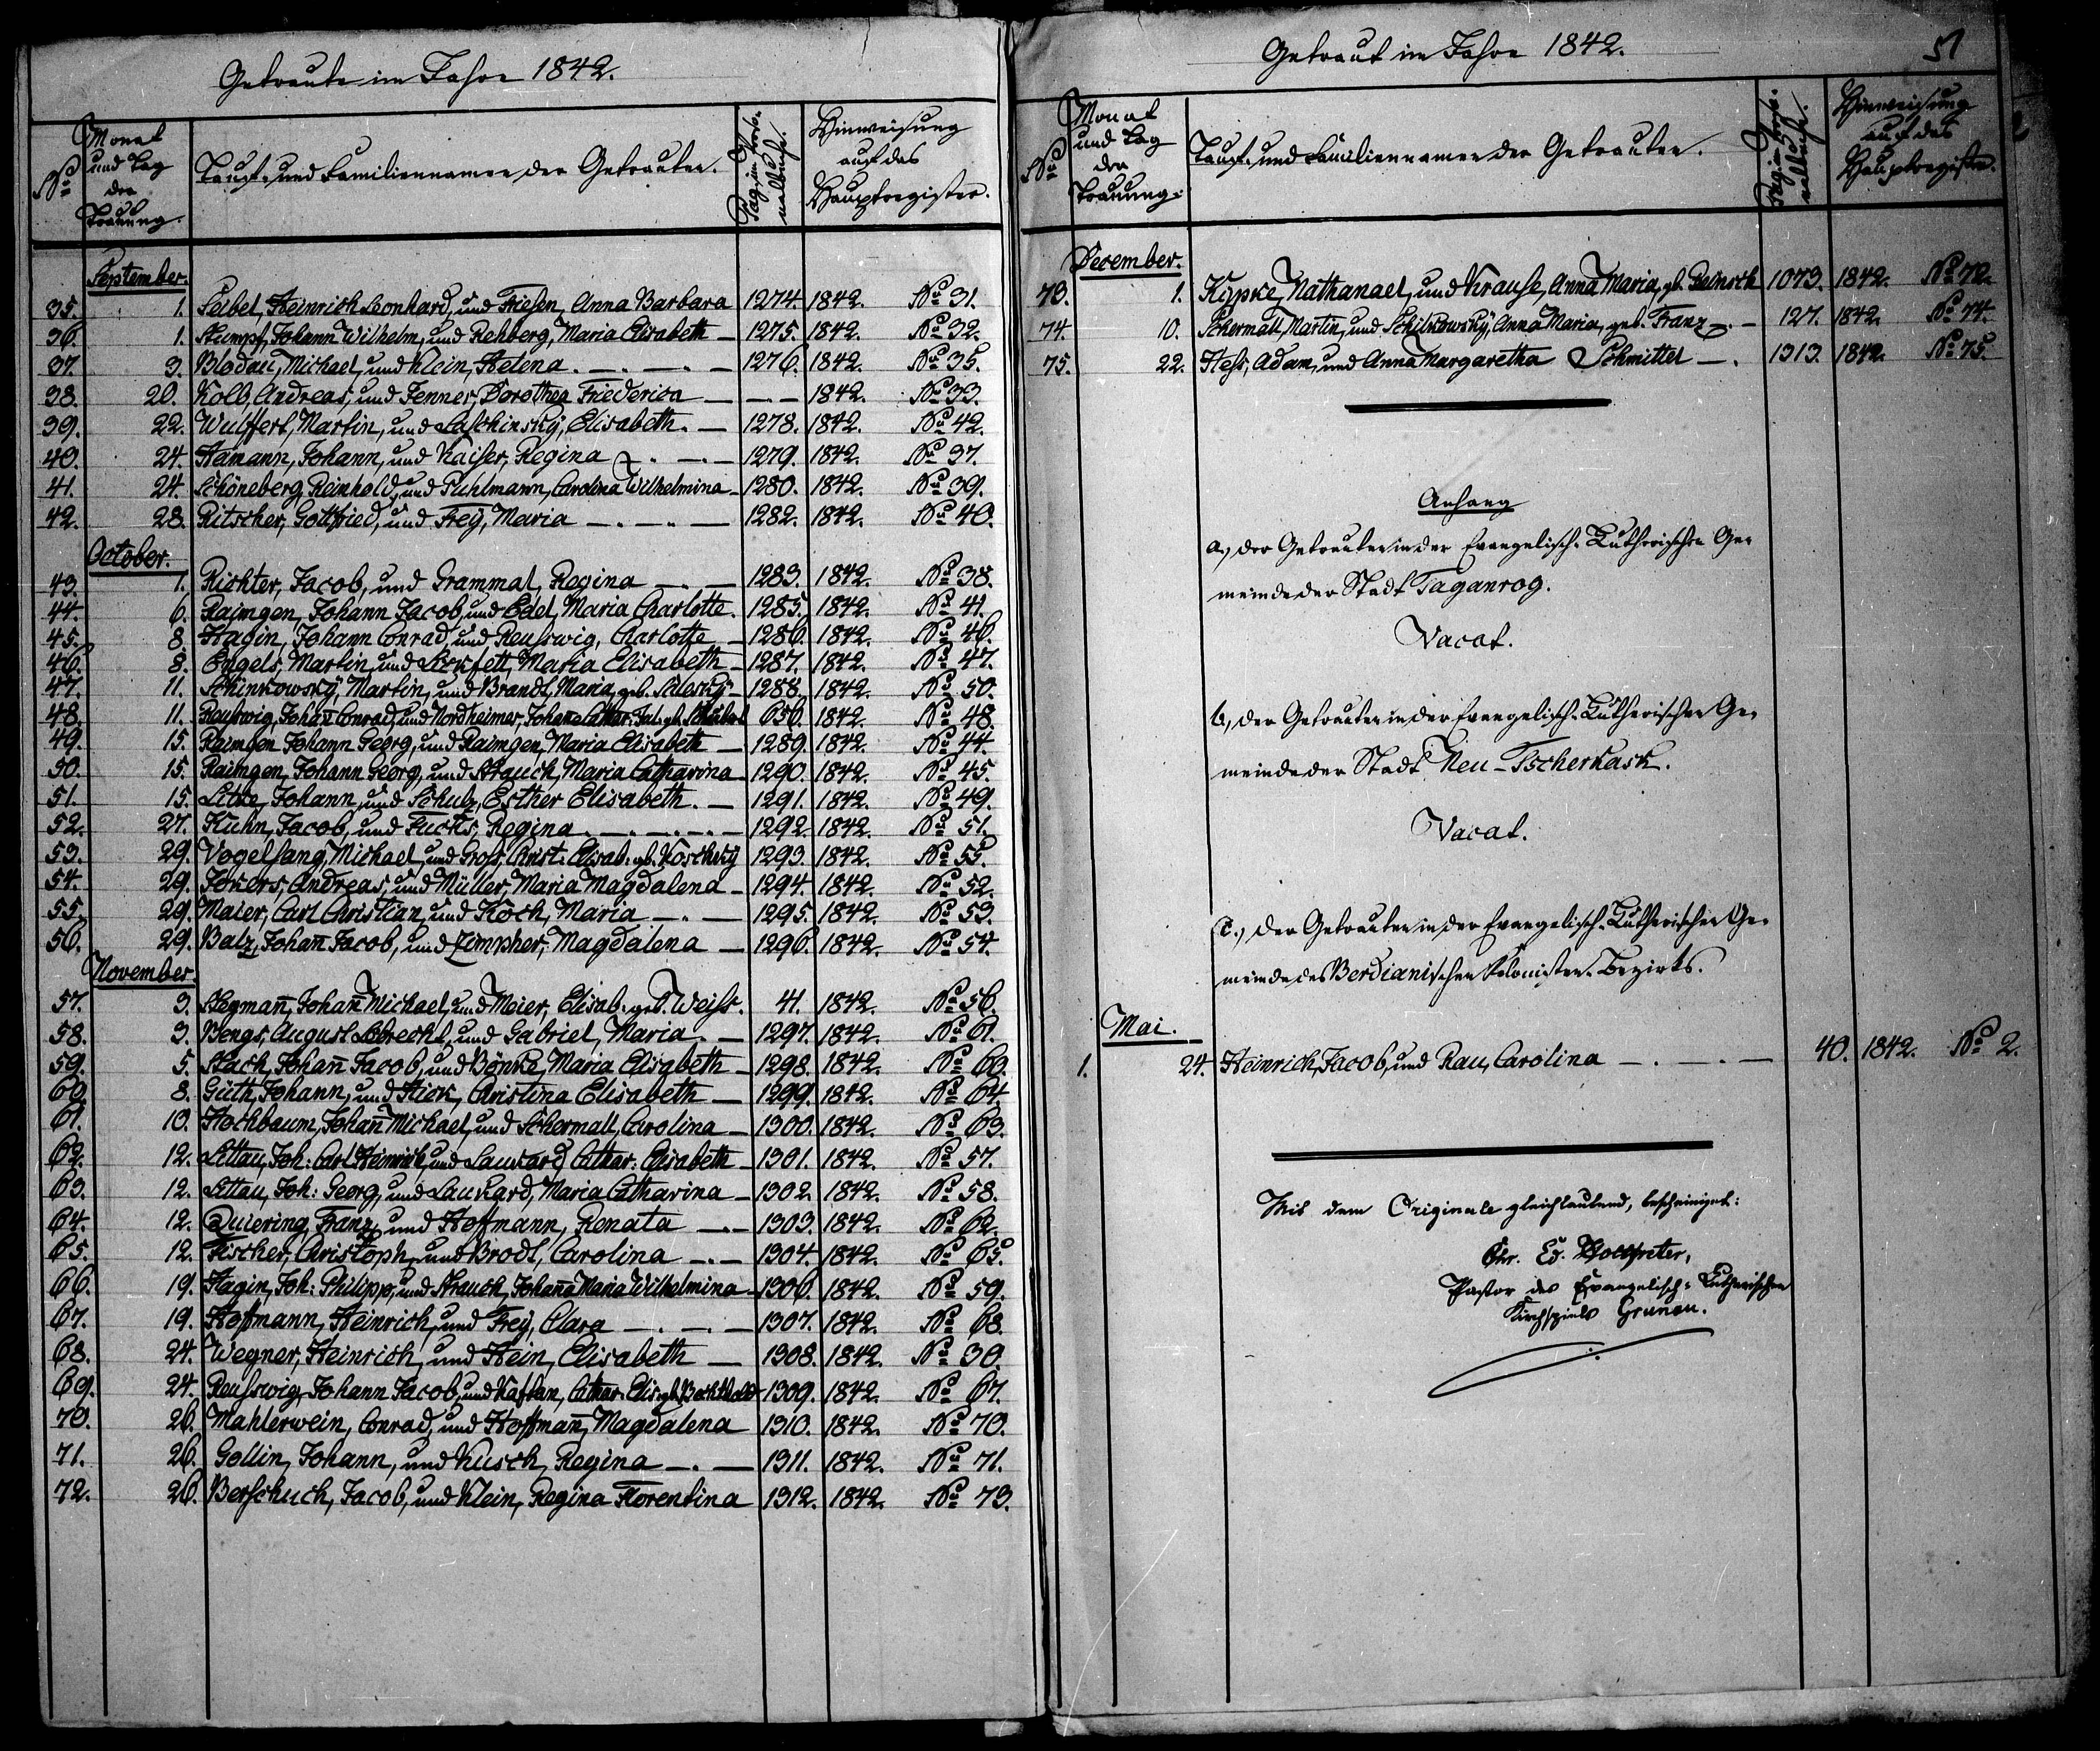 Getraute im Jahre 1842.
No
Monat
und Tag
der
Trauung.
Tauf- und Familiennamen der Getrauten.
Pag. im Perso-
nalbuche.
Hinweisung
auf das
Hauptregister.
September.
35. 1. Seibel, Heinrich Leonhard, und Friesen, Anna Barbara 1274. 1842. No 31.
36. 1. Stumpf, Johann Wilhelm, und Rehberg, Maria Elisabeth — 1275. 1842. No 32.
37. 3. Blodau, Michael, und Klein, Helena. —.—.— 1276. 1842. No 35.
38. 20. Kolb, Andreas, und Fenner, Dorothea Friederica — —.— 1842. No 33.
39. 22. Wulffert, Martin, und Laschinsky, Elisabeth. — 1278. 1842. No 42.
40. 24. Hamann, Johann, und Kaiser, Regina —.—.— 1279. 1842. No 37.
41. 24. Schöneberg, Reinhold, und Puhlmann, Carolina Wilhelmina — 1280. 1842. No 39.
42. 28. Ritscher, Gottfried, und Frey, Maria —.—.— 1282. 1842. No 40.
October.
43. 1. Richter, Jacob, und Grammat, Regina —.— 1283. 1842. No 38.
44. 6. Raimgen, Johann Jacob, und Edel, Maria Charlotte. 1285. 1842. No 41.
45. 8. Hagin, Johann Conrad, und Reuswig, Charlotte — 1286. 1842. No 46.
46. 8. Engels, Martin, und Maria Elisabeth — 1287. 1842. No 47.
47. 11. Schinkowsky, Martin, und Brandt, Maria, geb. — 1288. 1842. No 50.
48. 11. Reuswig, Johañ Conrad, und Nordheimer, 656. 1842. No 48.
49. 15. Raimgen, Johann Georg, und Raimgen, Maria Elisabeth — 1289. 1842. No 44.
50. 15. Raimgen, Johann Georg, und Strauch, Maria Catharina — 1290. 1842. No 45.
51. 15. Litke, Johann, und Schulz, Esther Elisabeth. — 1291. 1842. No 49.
52. 27. Kuhn, Jacob, und Fuchs, Regina. —.—.—.— 1292. 1842. No 51.
53. 29. Vogelsang, Michael, und Gross, Christ: Elisab: gb. Koschky 1293. 1842. No 55.
54. 29. Jokers, Andreas, und Müller, Maria Magdalena — 1294. 1842. No 52.
55. 29. Maier, Carl Christian, und Koch, Maria —.— 1295. 1842. No 53.
56. 29. Balz, Johañ Jacob, und Zimpher, Magdalena — 1296. 1842. No 54.
November.
57. 3. Stegmañ, Johañ Michael, und Meier, Elisab. geb. Weiss. 41. 1842. No 56.
58. 3. August und Gabriel, Maria. — 1297. 1842. No 61.
59. 5. Stach, Johañ Jacob, und Bönke, Maria Elisabeth — 1298. 1842. No 60.
60. 8. Güth, Johann, und Hick, Christina Elisabeth — 1299. 1842. No 64.
61. 10. Hochbaum, Johañ Michael, und Schermall, Carolina — 1300. 1842. No 63.
62. 12. Littau, Joh: Carl Heinrich, und Laukard, Cathar: Elisabeth — 1301. 1842. No 57.
63. 12. Littau, Joh: Georg, und Laukard, Maria Catharina — 1302. 1842. No 58.
64. 12. Quiering, Franz, und Hoffmann, Renata —.— 1303. 1842. No 62.
65. 12. Fischer, Christoph, und Brodt, Carolina —.— 1304. 1842. No 65.
66. 19. Hagin, Joh: Philipp, und Strauch, Johaña Maria Wilhelmina — 1306. 1842. No 59.
67. 19. Hoffmann, Heinrich, und Frey, Clara —.—.— 1307. 1842. No 68.
68. 24. Wegner, Heinrich, und Hein, Elisabeth — 1308. 1842. No 30.
69. 24. Reuswig, Johann Jacob, und Kaftan, Cathar. Elis. gb. Berthold 1309. 1842. No 67.
70. 26. Mahlerwein, Conrad, und Hoffmañ, Magdalena 1310. 1842. No 70.
71. 26. Gollin, Johann, und Kusch, Regina —.— 1311. 1842. No 71.
72. 26. Berschuch, Jacob, und Klein, Regina Florentina 1312. 1842. No 73.
Getraut im Jahre 1842.
51
No
Monat
und Tag
der
Trauung.
Tauf- und Familiennamen der Getrauten.
Pag. im Perso-
nalbuche.
Hinweisung
auf das
Hauptregister.
December.
73. 1. Kypke, Nathanael, und Krause, Anna Maria, gb. 1073. 1842. No 72.
74. 10. Schermall, Martin, und Schilkowsky, Anna Maria, geb. Franz —.— 127. 1842. No 74.
75. 22. Hess, Adam, und Anna Margaretha Schmittel —. 1313. 1842. No 75.
Anhang
a.) der Getrauten in der Evangelisch-Lutherischen Ge-
meinde der Stadt Taganrog.
Vacat.
b.) der Getrauten in der Evangelisch-Lutherischen Ge-
meinde der Stadt Neu-Tscherkask.
Vacat.
c.) der Getrauten in der Evangelisch-Lutherischen Ge-
meinde des Berdianischen Kolonisten-Bezirks.
Mai.
1. 24. Heinrich, Jacob, und Rau, Carolina —.—.— 40. 1842. No 2.
Mit dem Originale gleichlautend, bescheiniget:
Chr. Ed. Holtfreter,
Pastor des Evangelisch-Lutherischen
Kirchspiels Grunau.